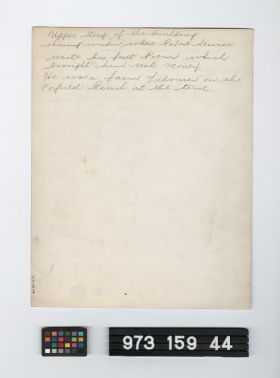 Upper Story of the Building
showing window where Robert Service
wrote his first Poem which
brought him real Money
He was a farm Labourer on the
Corfield Ranch at the time
973 159 44